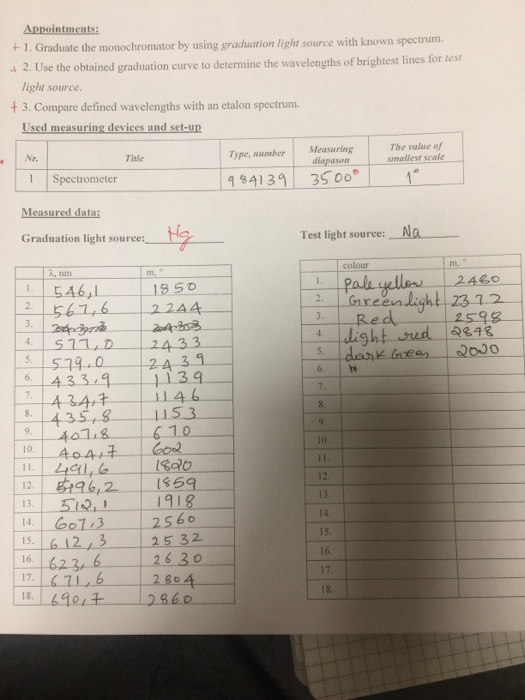 Appointments:
+ 1. Graduate the monochromator by using graduation light source with known spectrum.
+ 2. Use the obtained graduation curve to determine the wavelengths of brightest lines for test
light source.
+ 3. Compare defined wavelengths with an etalon spectrum.
Used measuring devices and set-up
Nr. Title Type, number Measuring diapason The value of smallest scale
1 Spectrometer 984139 3500° 1°
Measured data:
Graduation light source: Hg
Test light source: Na
λ, nm m, °
1. 546,1 1850
2. 567,6 2244
3.
4. 577,0 2433
5. 579,0 2439
6. 433,9 1139
7. 434,7 1146
8. 435,8 1153
9. 407,8 670
10. 404,7 602
11. 491,6 1820
12. 496,2 1859
13. 512,1 1918
14. 607,3 2560
15. 612,3 2532
16. 623,6 2630
17. 671,6 2804
18. 690,7 2860
colour m, °
1. Pale yellow 2460
2. Green light 2372
3. Red 2598
4. light red 2878
5. dark Green 2020
6.
7.
8.
9.
10.
11.
12.
13.
14.
15.
16.
17.
18.